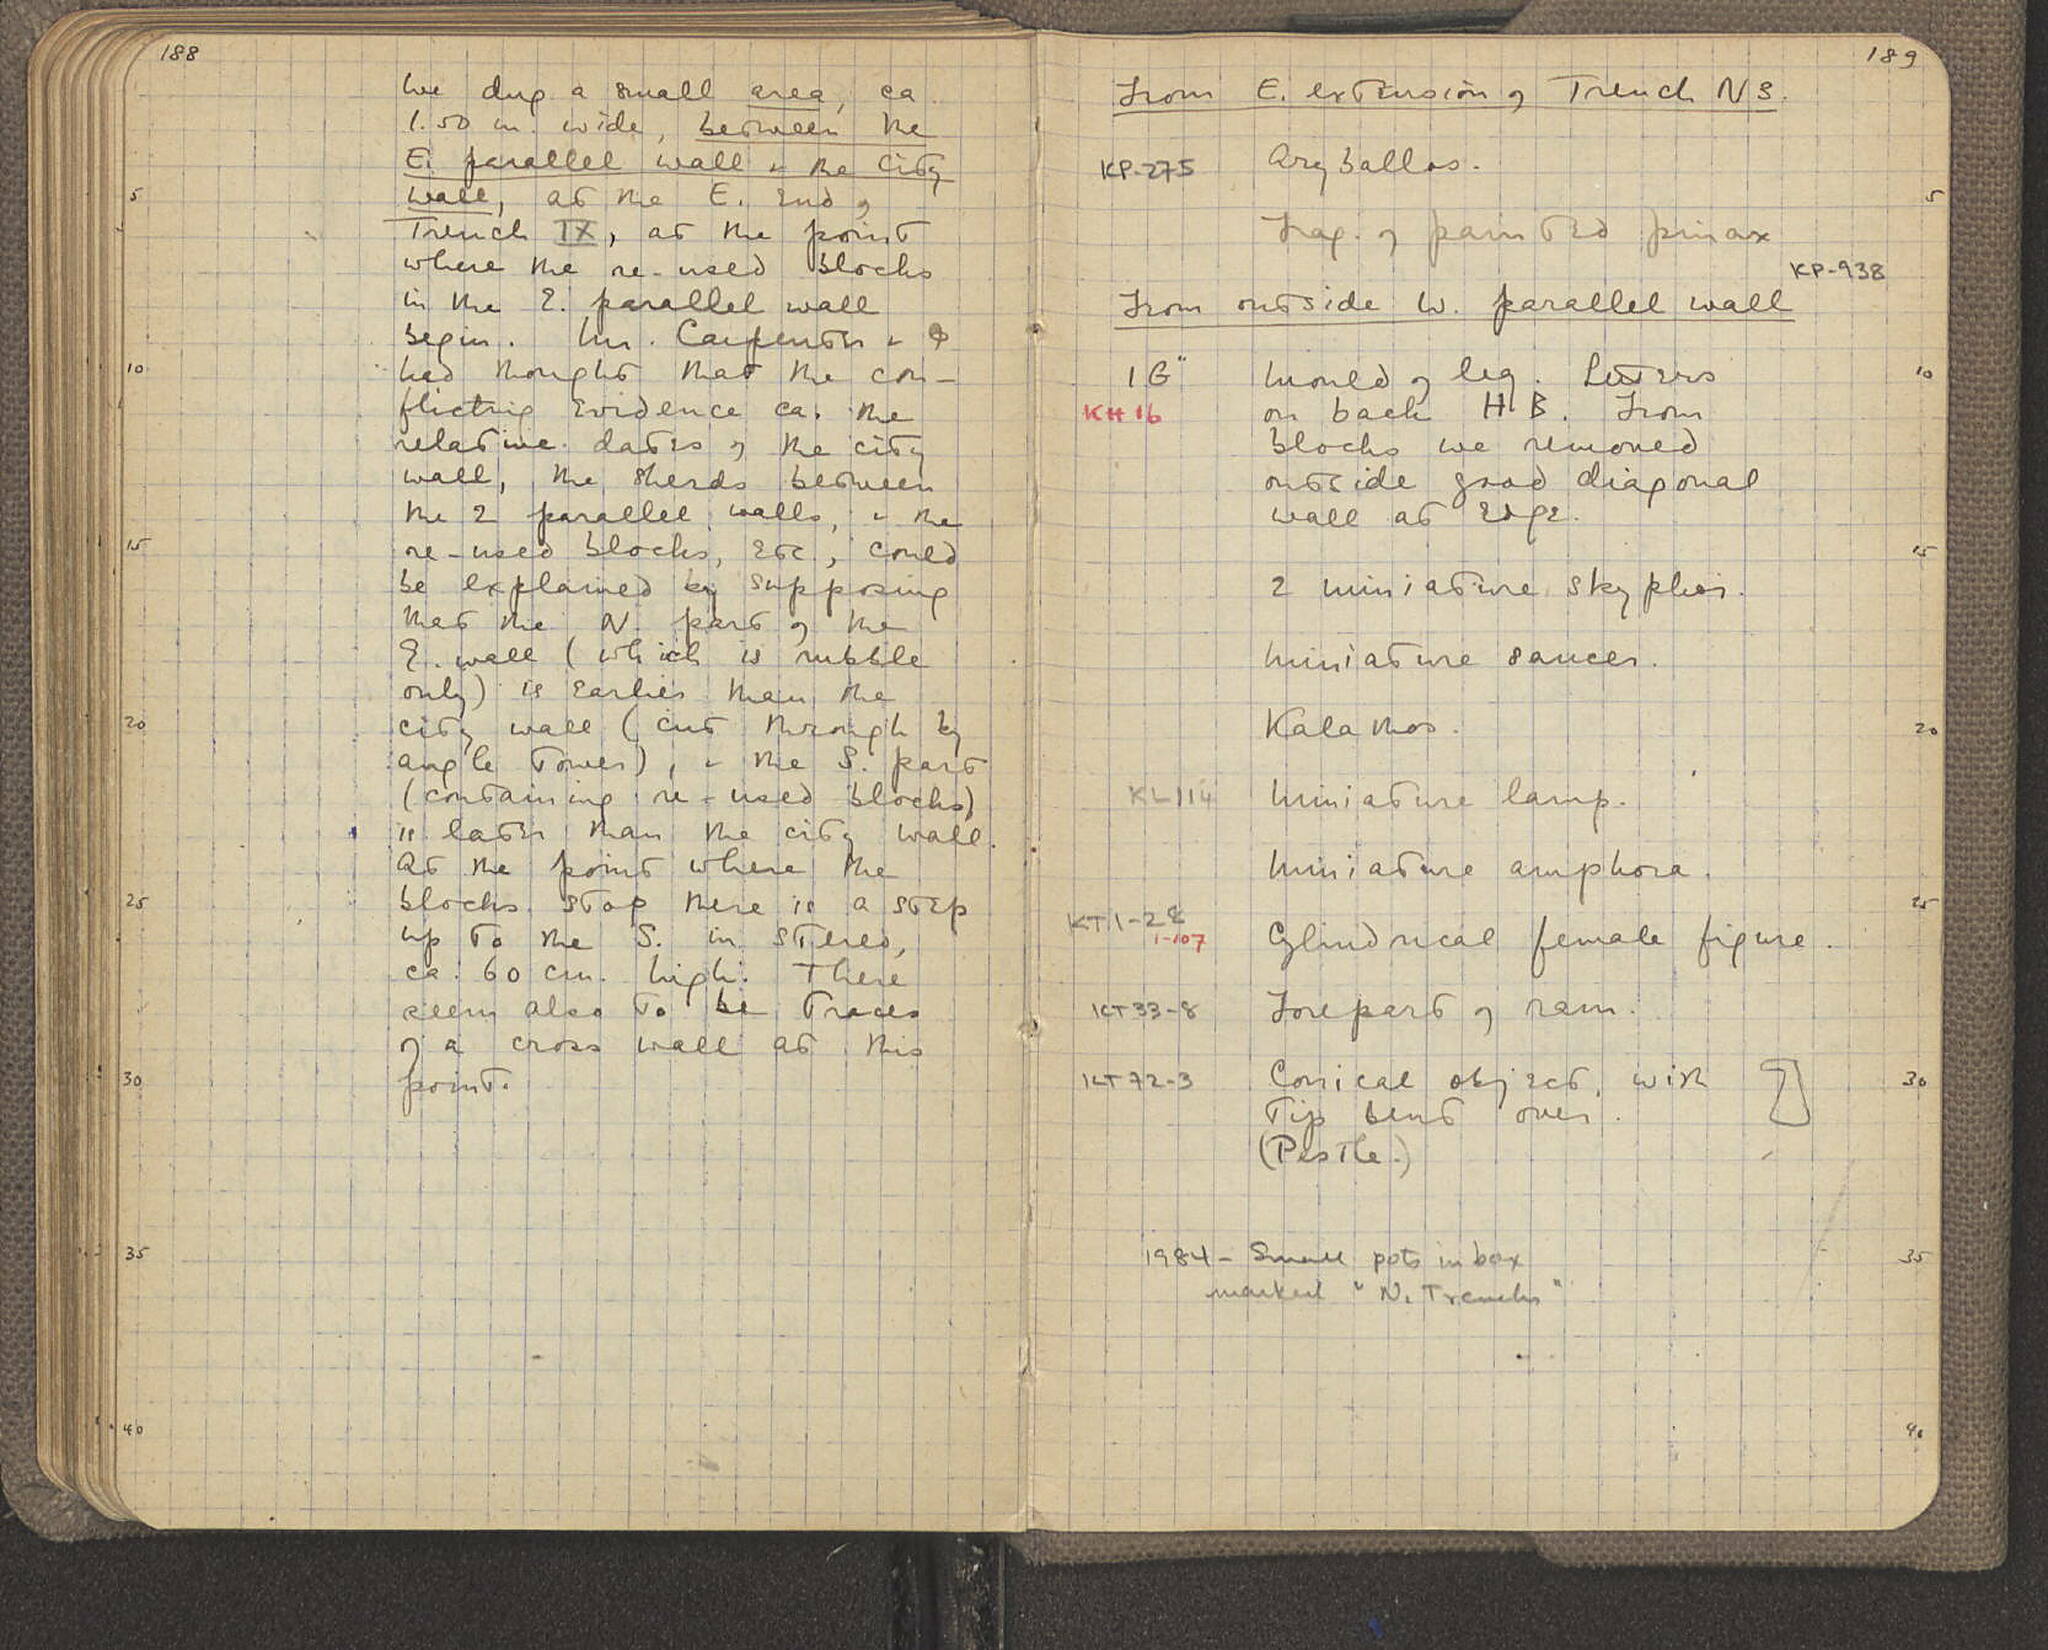 188
We dug a small area, ca.
1.50 m. wide, between the
5
E. parallel wall & the city
wall, at the E. end of
Trench IX, at the point
where the re-used blocks
in the E. parallel wall
begin. Mr. Carpenter & I
10
had thought that the con-
flicting evidence ca. the
relative dates of the city
wall, the sherds between
the 2 parallel walls, & the
15
re-used blocks, etc, could
be explained by supposing
that the N. part of the
E. wall (which is rubble
only) is earlier than the
20
city wall (cut through by
angle tower), & the S. part
(containing re-used blocks)
is later than the city wall.
At the point where the
25
blocks stop there is a step
up to the S. in stereo,
ca. 60 cm. high. There
seem also to be traces
of a cross wall at this
30
point.
35
40
189
From E. extension of Trench NS.
KP-275 Aryballos.
5
Frag. of painted pinax
KP-938
From outside W. parallel wall
1G" Mould of leg. Letters
10
KH 16 on back H B. From
blocks we removed
outside good diagonal
wall at edge.
15
2 miniature skyphoi.
Miniature saucer.
Kalathos.
20
KL114 Miniature lamp.
Miniature amphora.
25
KT1-28
1-107 Cylindrical female figure.
KT33-8 Forepart of ram.
KT72-3 Conical object, with
30
tip bent over.
(Pestle.)
1984 - Small pots in box
35
marked "N. Trenches"
40